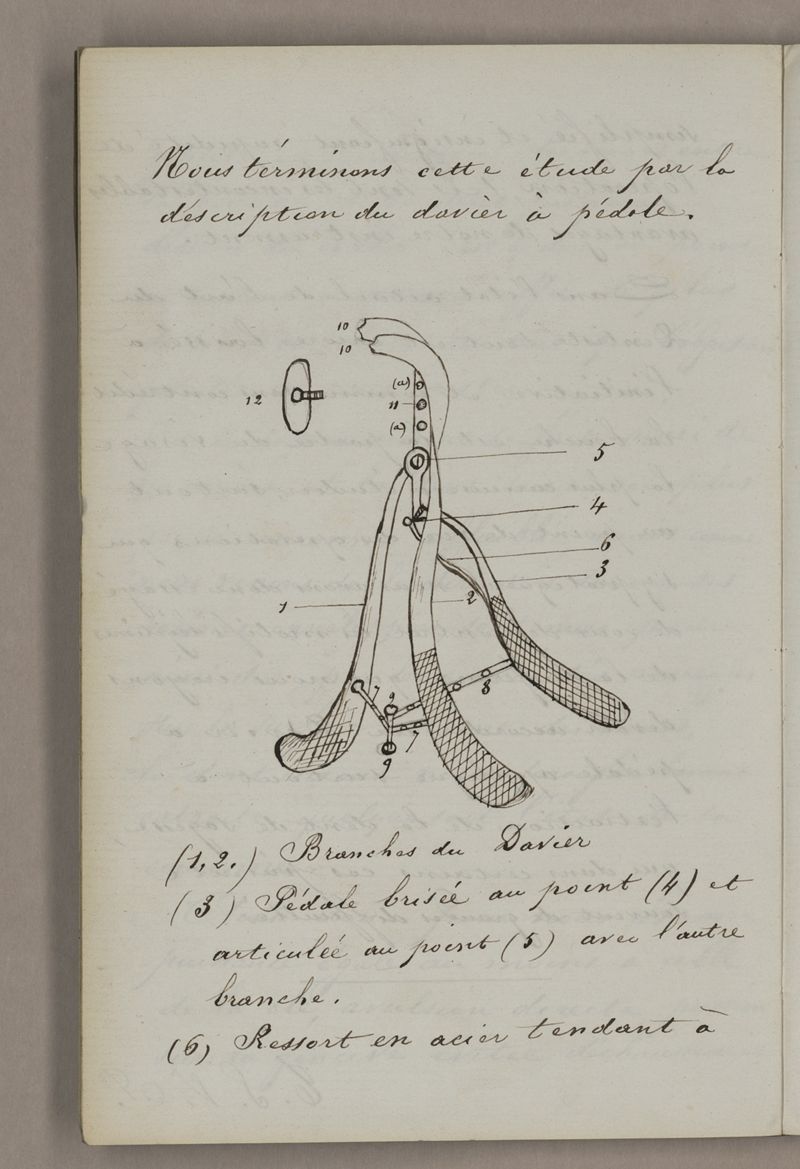 Nous términons cette étude par la
déscription du davièr à pédale.
10
10
(a)
12
11
(a)
5
4
6
3
1
2
8
7
9
7
9
(1, 2.) Branches du Davier
(3) Pédale briséé au point (4) et
articuléé au point (5) avec l'autre
branche.
(6) Ressort en acier tendant à